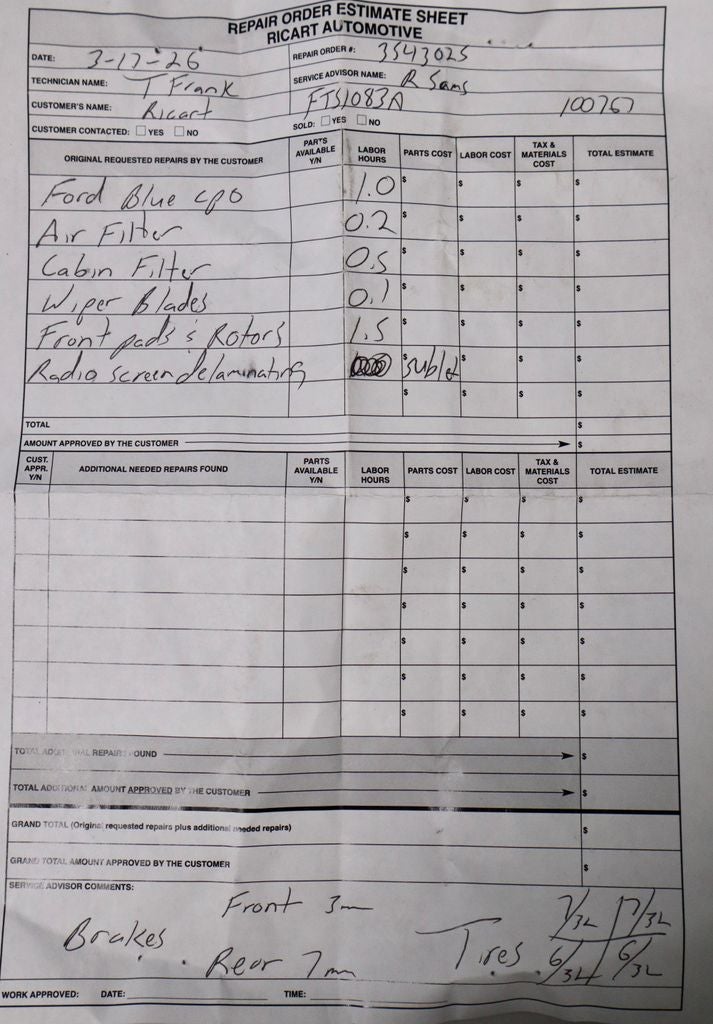 REPAIR ORDER ESTIMATE SHEET
RICART AUTOMOTIVE
DATE: 3-17-26 REPAIR ORDER #: 3543025
TECHNICIAN NAME: T Frank SERVICE ADVISOR NAME: R Sams
CUSTOMER'S NAME: Ricart FTS1083A 100767
CUSTOMER CONTACTED: ☐ YES ☐ NO SOLD: ☐ YES ☐ NO
ORIGINAL REQUESTED REPAIRS BY THE CUSTOMER PARTS AVAILABLE Y/N LABOR HOURS PARTS COST LABOR COST TAX & MATERIALS COST TOTAL ESTIMATE
Ford Blue CPO 1.0 $ $ $ $
Air Filter 0.2 $ $ $ $
Cabin Filter 0.5 $ $ $ $
Wiper Blades 0.1 $ $ $ $
Front pads & Rotors 1.5 $ $ $ $
Radio screen delaminating $ sublet $ $ $
$ $ $ $
TOTAL $
AMOUNT APPROVED BY THE CUSTOMER $
CUST. APPR. Y/N ADDITIONAL NEEDED REPAIRS FOUND PARTS AVAILABLE Y/N LABOR HOURS PARTS COST LABOR COST TAX & MATERIALS COST TOTAL ESTIMATE
$ $ $ $
$ $ $ $
$ $ $ $
$ $ $ $
$ $ $ $
$ $ $ $
$ $ $ $
TOTAL ADDITIONAL REPAIRS FOUND $
TOTAL ADDITIONAL AMOUNT APPROVED BY THE CUSTOMER $
GRAND TOTAL (Original requested repairs plus additional needed repairs) $
GRAND TOTAL AMOUNT APPROVED BY THE CUSTOMER $
SERVICE ADVISOR COMMENTS:
Front 3mm 7/32 7/32
Brakes Tires
Rear 7mm 6/32 6/32
WORK APPROVED: DATE: TIME: